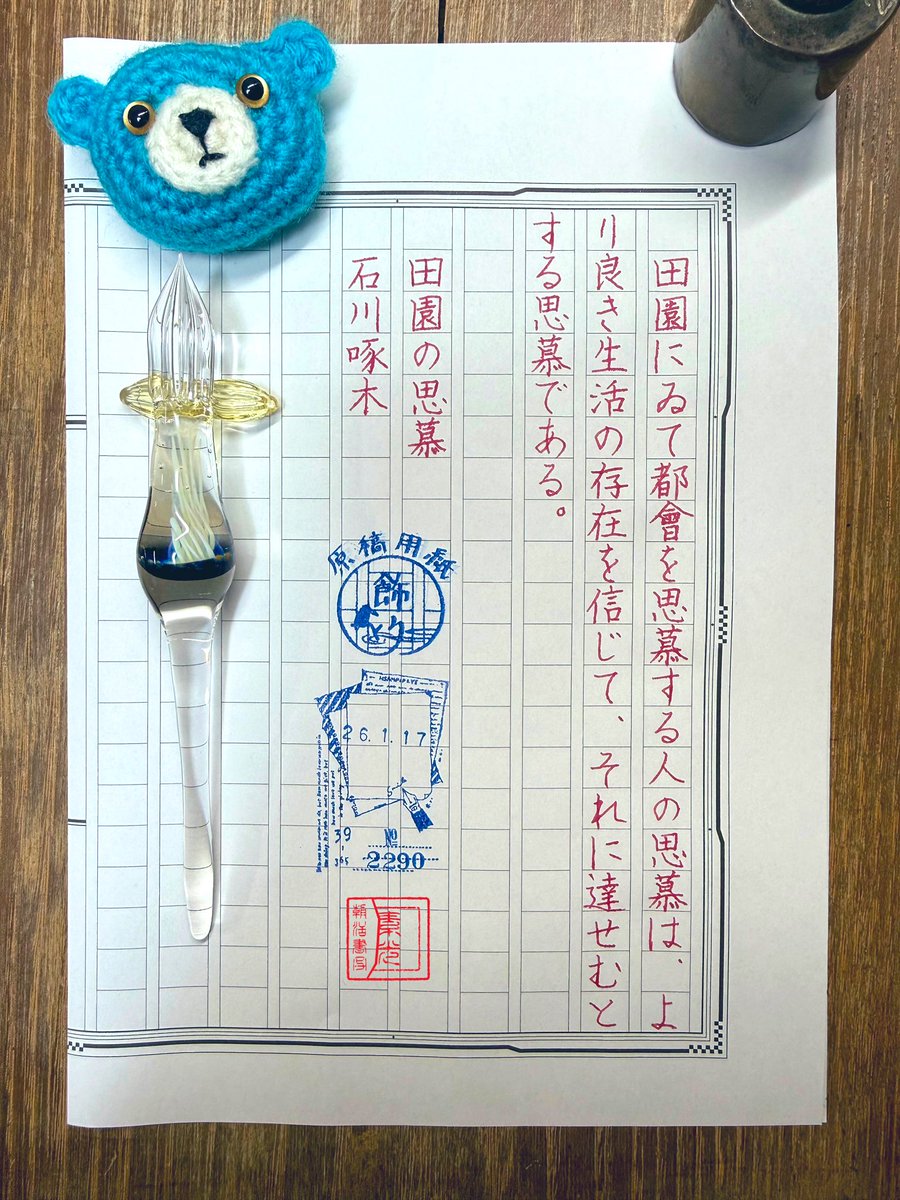 田園にゐて都會を思慕する人の思慕は、よ
り良き生活の存在を信じて、それに達せむと
する思慕である。
田園の思慕
石川啄木
原稿用紙
飾り
26.1.17
39
No
2290